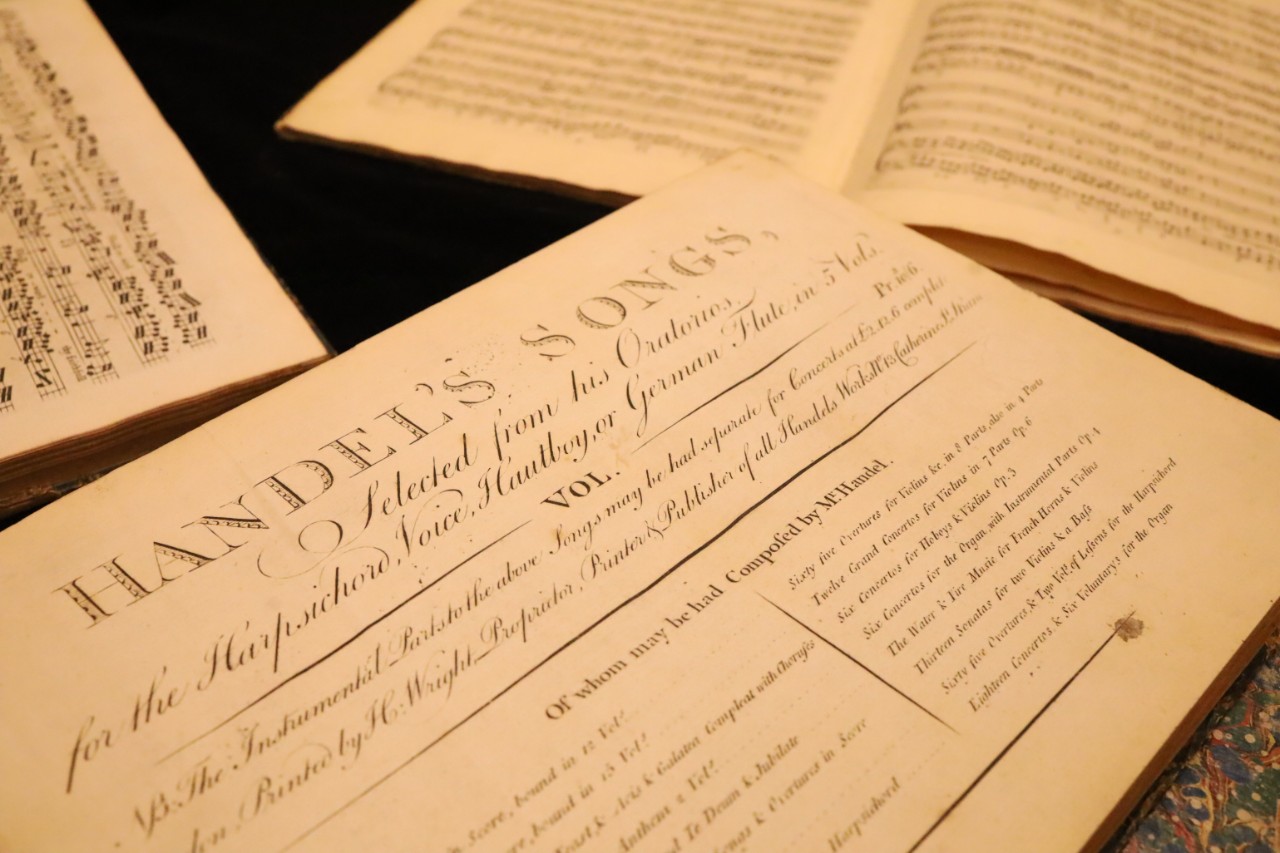 HANDEL'S SONGS,
Selected from his Oratorios,
for the Harpsichord, Voice, Hautboy, or German Flute, in 5 Vols.
VOL. Pr. 10s6
NB. The Instrumental Parts to the above Songs may be had separate for Concerts at £2.12.6 complt.
don Printed by H. Wright, Proprietor, Printer & Publisher of all Handels Works No. 13 Catherine St.
Of whom may be had Compoſed by Mr. Handel.
Score, bound in 12 Vols.
bound in 13 Vols.
& Acis & Galatea Compleat with Choruſes
Anthems 2 Vols.
Te Deum & Jubilate
& Overtures in Score
Harpsichord
Sixty five Overtures for Violins &c. in 8 Parts, also in 4 Parts
Twelve Grand Concertos for Violins in 7 Parts Op. 6
Six Concertos for Hoboys & Violins Op. 3
Six Concertos for the Organ, with Instrumental Parts Op. 4
The Water & Fire Music for French Horns & Violins
Thirteen Sonatas for two Violins & a Baſs
Sixty five Overtures, & Two Vols. of Leſsons for the Harpsicord
Eighteen Concertos, & Six Voluntarys for the Organ